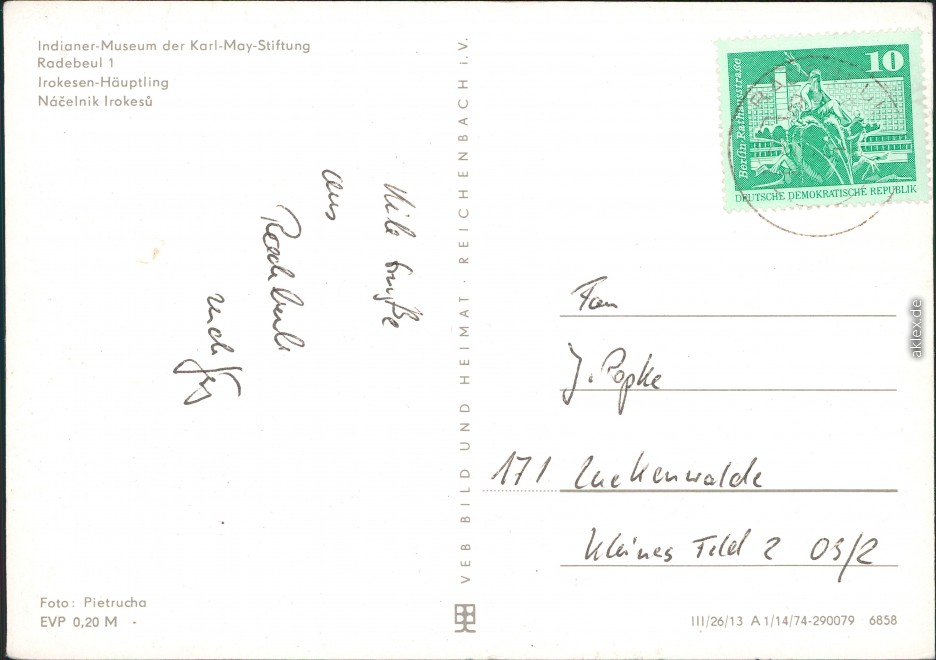 Indianer-Museum der Karl-May-Stiftung
Radebeul 1
Irokesen-Häuptling
Náčelnik Irokesů
Viele Grüße
aus
Radebeul
VEB BILD UND HEIMAT · REICHENBACH I.V.
10
Berlin-Rathausstraße
DEUTSCHE DEMOKRATISCHE REPUBLIK
Fam
J. Popke
171 Luckenwalde
Kleines Feld 2 03/2
aklex.de
Foto: Pietrucha
EVP 0,20 M
III/26/13 A 1/14/74-290079 6858